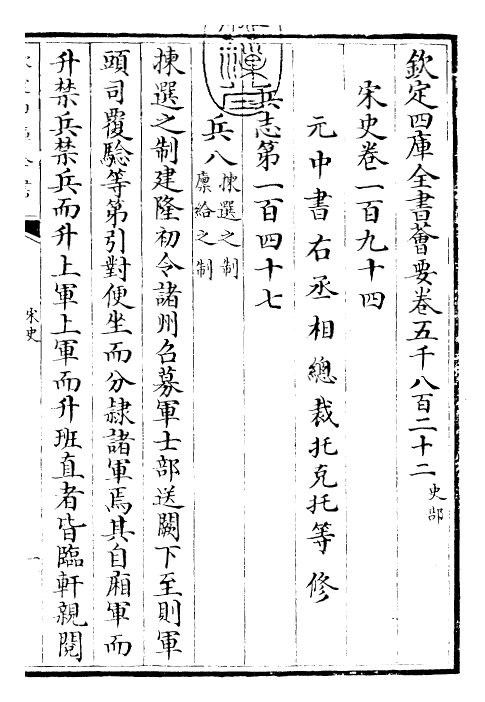 欽定四庫全書薈要卷五千八百二十二 史部
宋史卷一百九十四
元中書右丞相總裁托克托等修
兵志第一百四十七
兵八 揀選之制
廪給之制
揀選之制建隆初令諸州召募軍士部送闕下至則軍
頭司覆驗等第引對便坐而分隷諸軍焉其自廂軍而
升禁兵禁兵而升上軍上軍而升班直者皆臨軒親閱
宋史
一